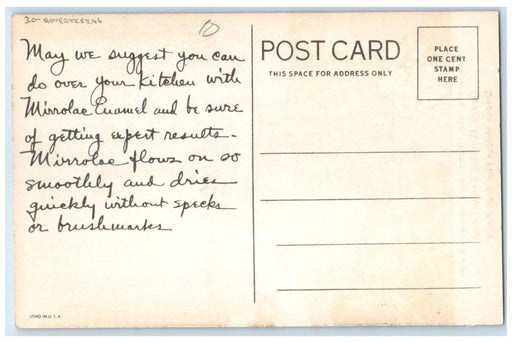 30- ADVERTISING
10
May we suggest you can
do over your kitchen with
Mirrolac Enamel and be sure
of getting expert results-
Mirrolac flows on so
smoothly and dries
quickly without specks
or brushmarks
POST CARD
THIS SPACE FOR ADDRESS ONLY
PLACE
ONE CENT
STAMP
HERE
LITHO IN U.S.A